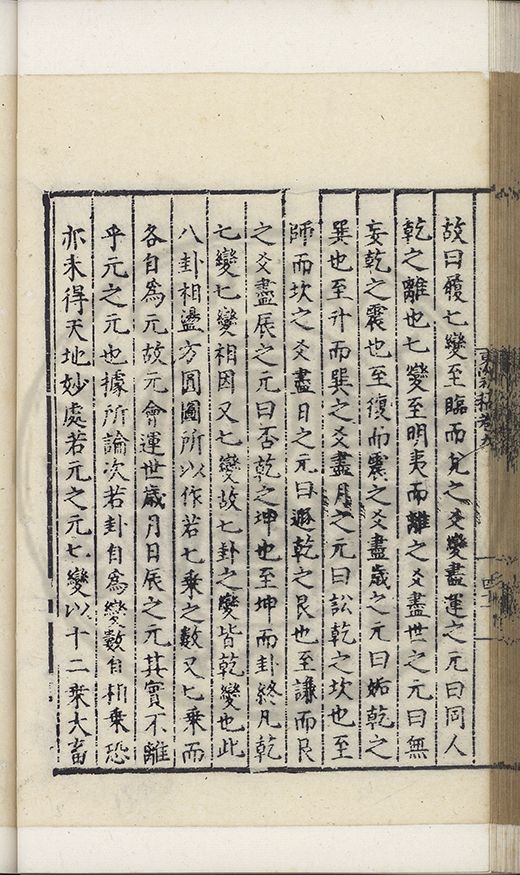 故曰履七變至臨而兌之爻變盡運之元曰同人
乾之離也七變至明夷而離之爻盡世之元曰無
妄乾之震也至復而震之爻盡歲之元曰姤乾之
巽也至升而巽之爻盡月之元曰訟乾之坎也至
師而坎之爻盡日之元曰遯乾之艮也至謙而艮
之爻盡辰之元曰否乾之坤也至坤而卦終凡乾
七變七變相因又七變故七卦之變皆乾變也此
八卦相盪方圓圖所以作若七乘之數又七乘而
各自為元故元會運世歲月日辰之元其實不離
乎元之元也據所論次若卦自為變數自相乘恐
亦未得天地妙處若元之元七變以十二乘大畜